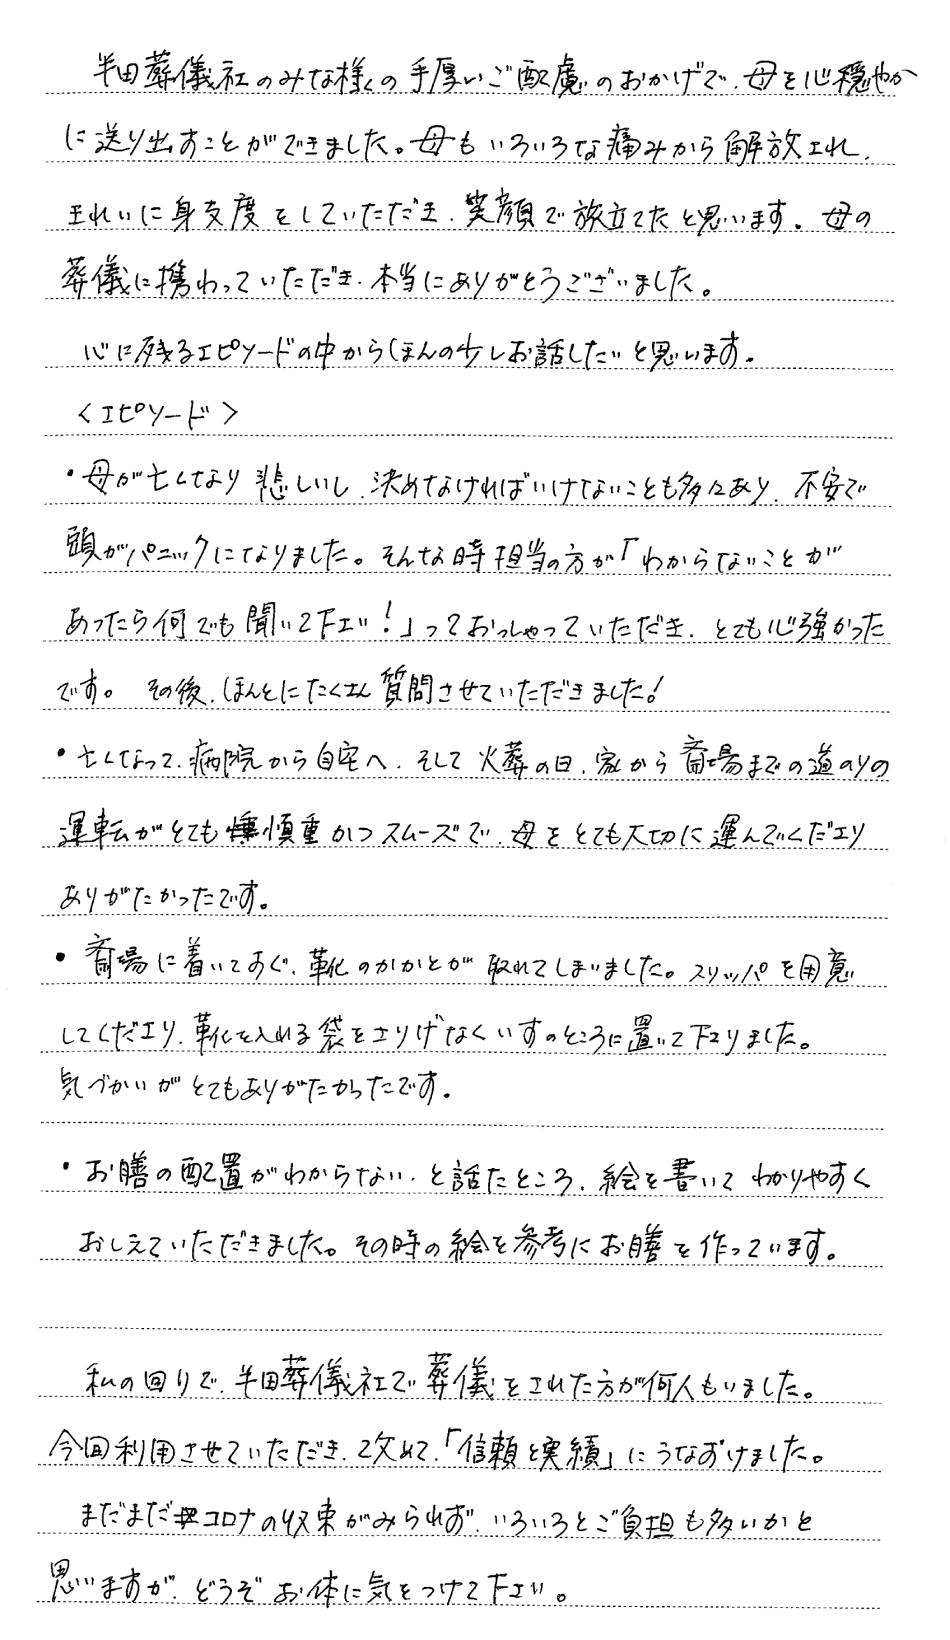 半田葬儀社のみな様々の手厚いご配慮のおかげで、母を心穏やか
に送り出すことができました。母もいろいろな痛みから解放され、
きれいに身支度をしていただき、笑顔で旅立てたと思います。母の
葬儀に携わっていただき、本当にありがとうございました。
心に残るエピソードの中からほんの少しお話したいと思います。
〈エピソード〉
・母が亡くなり悲しいし、決めなければいけないことも多々あり、不安で
頭がパニックになりました。そんな時担当の方が「わからないことが
あったら何でも聞いて下さい!」っておっしゃっていただき、とても心強かった
です。その後、ほんとにたくさん質問させていただきました!
・亡くなって、病院から自宅へ、そして火葬の日、家から斎場までの道のりの
運転がとても慎重かつスムーズで、母をとても大切に運んでくださり
ありがたかったです。
・斎場に着いてすぐ、靴のかかとが取れてしまいました。スリッパを用意
してくださり、靴を入れる袋をさりげなくいすのところに置いて下さりました。
気づかいがとてもありがたかったです。
・お膳の配置がわからない、と話たところ、絵を書いてわかりやすく
おしえていただきました。その時の絵を参考にお膳を作っています。
私の回りで、半田葬儀社で葬儀をされた方が何人もいました。
今回利用させていただき、改めて、「信頼と実績」にうなずけました。
まだまだコロナの収束がみられず、いろいろとご負担も多いかと
思いますが、どうぞお体に気をつけて下さい。